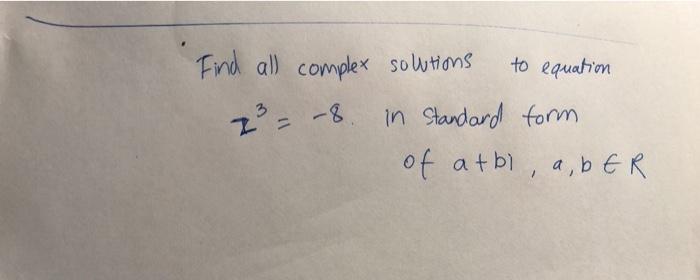 Find all complex solutions to equation
z³ = -8. in standard form
of a+bi, a,b ∈ R